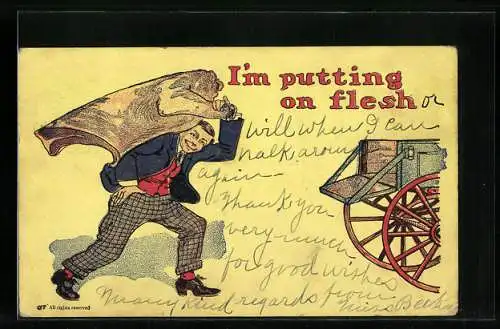 I'm putting
on flesh or
will when I can
walk around
again —
Thank you
very much
for good wishes
Many kind regards from
Miss
© All rights reserved